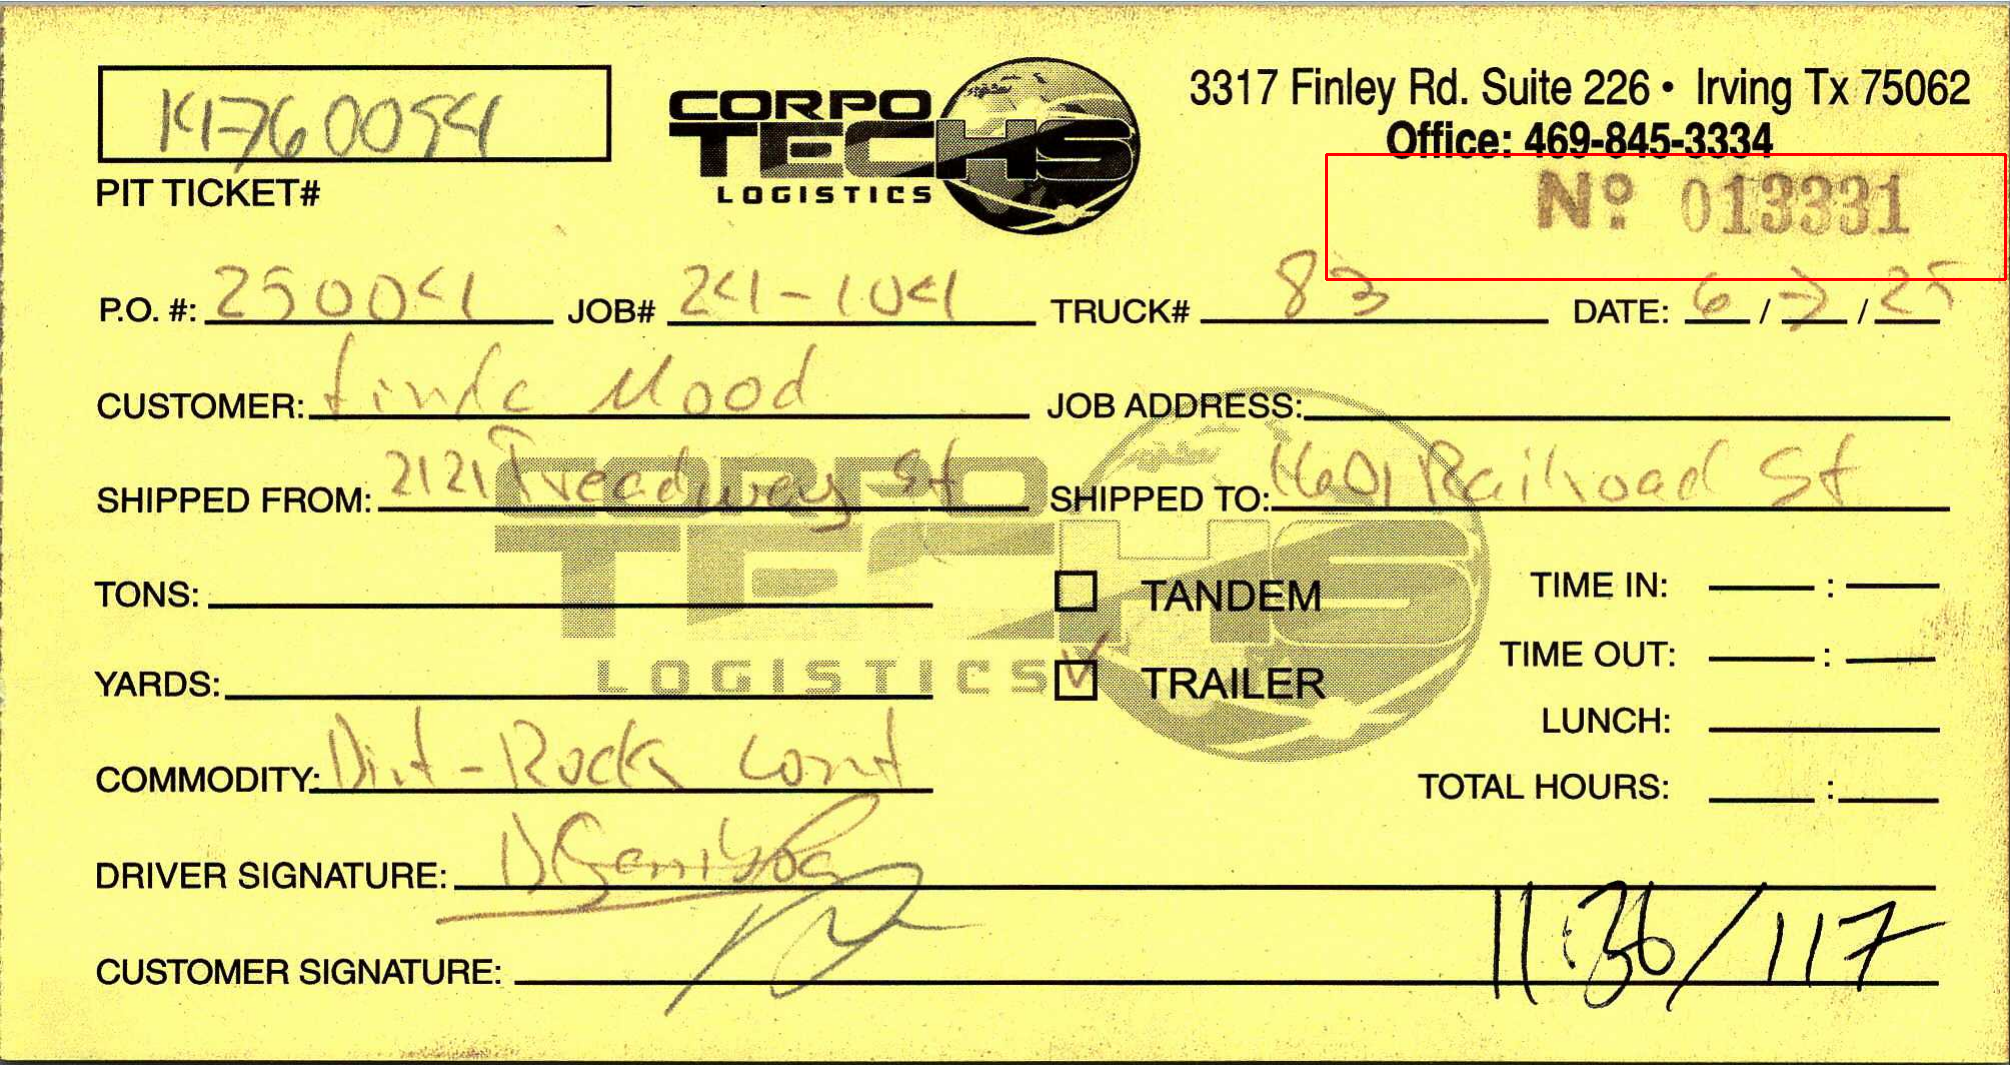 14760094
PIT TICKET#
CORPO
TECHS
LOGISTICS
3317 Finley Rd. Suite 226 • Irving Tx 75062
Office: 469-845-3334
Nº 013331
P.O. #: 250041 JOB# 24-104 TRUCK# 83 DATE: 6 / 7 / 25
CUSTOMER: Linda Mood JOB ADDRESS:
SHIPPED FROM: 2121 Treadway St SHIPPED TO: 1601 Railroad St
TONS: TANDEM TIME IN: :
YARDS: TRAILER TIME OUT: :
LUNCH:
COMMODITY: Dirt-Rock Cont TOTAL HOURS: :
DRIVER SIGNATURE:
CUSTOMER SIGNATURE: 11:36/117